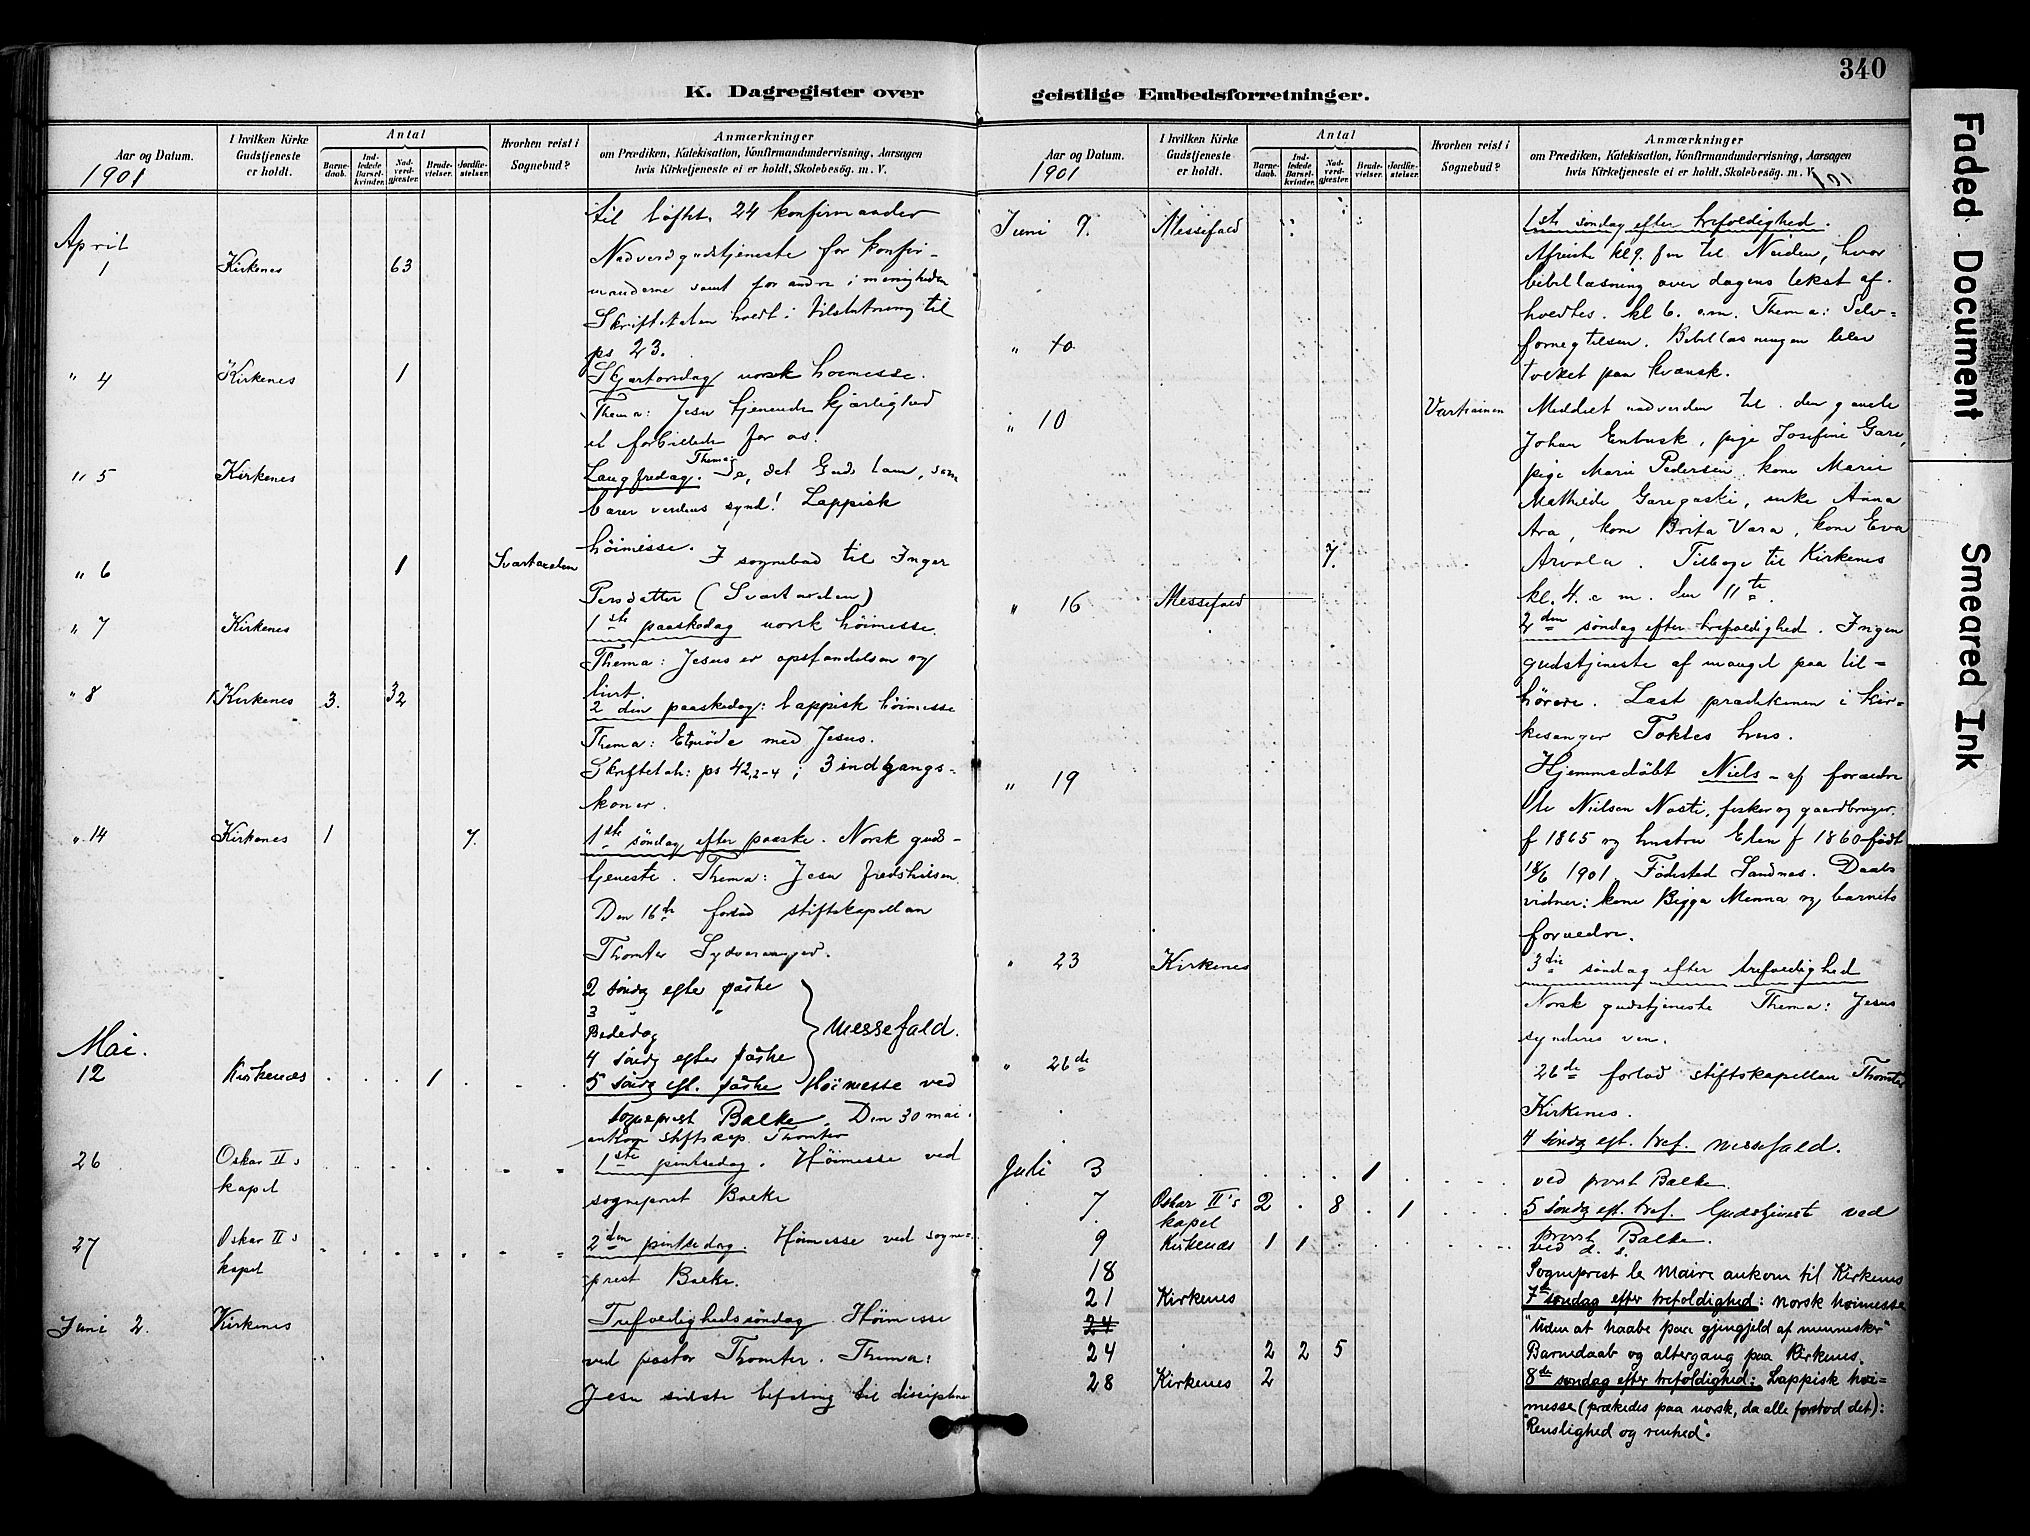 340
K. Dagregister over geistlige Embedsforretninger.
Aar og Datum.
1901
I hvilken Kirke Gudstjeneste er holdt.
Antal
Barnedaab.
Indledede Barselkvinder.
Nadverdgjester.
Brudevielser.
Jordfæstelser.
Hvorhen reist i Sognebud?
Anmærkninger
om Prædiken, Katekisation, Konfirmandundervisning, Aarsagen
hvis Kirketjeneste ei er holdt, Skolebesøg. m. V.
til løftet. 24 konfirmander
April
1 Kirkenes 63 Nadverdgudstjeneste for konfir-
manderne samt for andre i menigheden
Skriftetalen holdt i tilslutning til
ps 23.
" 4 Kirkenes 1 Skjærtorsdag norsk høimesse.
Thema: Jesu tjenende kjærlighed
et forbillede for os.
" 5 Kirkenes Langfredag. Thema: Se, det Guds lam, som
bærer verdens synd! Lappisk
høimesse.
" 6 1 Svartaxelen I sognebud til Inger
Persdatter (Svartaxelen)
" 7 Kirkenes 1ste paaskedag norsk høimesse.
Thema: Jesus er opstandelsen og
livet.
" 8 Kirkenes 3. 32 2den paaskedag: Lappisk høimesse
Thema: Et møde med Jesus.
Skriftetale: ps 42,2-4; 3 indgangs-
koner.
" 14 Kirkenes 1 7. 1ste søndag efter paaske. Norsk guds-
tjeneste. Thema: Jesu fredshilsen.
Den 16de forlod stiftskapellan
Thomter Sydvaranger.
2 søndg efter påske
3 " "
Bededag
4 søndg efter påske
Messefald.
Mai.
12 Kirkenæs 1 5 søndg eft. påske Høimesse ved
sogneprest Balke. Den 30 mai
ankom stiftskap. Thomter
26 Oskar II's kapel 1ste pintsedag. Høimesse ved
sogneprest Balke
27 Oskar II's kapel 2den pintsedag. Høimesse ved sogne-
prest Balke.
Juni 2. Kirkenes Trefoldighedssøndag. Høimesse
ved pastor Thomter. Thema:
Jesu sidste befaling til disciplene
Aar og Datum.
1901
I hvilken Kirke Gudstjeneste er holdt.
Antal
Barnedaab.
Indledede Barselkvinder.
Nadverdgjester.
Brudevielser.
Jordfæstelser.
Hvorhen reist i Sognebud?
Anmærkninger
om Prædiken, Katekisation, Konfirmandundervisning, Aarsagen
hvis Kirketjeneste ei er holdt, Skolebesøg. m. V.
Juni 9. Messefald 1ste søndag efter trefoldighed.
Afreiste kl 9. fm til Neiden, hvor
bibellæsning over dagens tekst af-
holdtes. kl 6. e.m. Thema: Selv-
fornegtelsen. Bibellæsningen blev
" 10. tolket paa kvænsk.
" 10 Meddelt nadverden til den gamle
Johan Enbusk, pige Josefine Gare,
pige Marie Pedersen, kone Marie
Mathilde Garegaski, enke Anna
Ara, kone Brita Vara, kone Eva
7. Arvola. Tilbage til Kirkenes
kl. 4. e m. den 11te.
" 16 Messefald 2den søndag efter trefoldighed. Ingen
gudstjeneste af mangel paa til-
hørere. Læst prædikenen i kir-
kesanger Toktes hus.
" 19 Hjemmedøbt Niels - af forældre
Ole Nielsen Nasti, fisker og gaardbruger,
f 1865 og hustru Elen f 1860 født
18/6 1901. Fødested Sandnes. Daabs
vidner: kone Bigga Menna og barnets
forældre.
" 23 Kirkenes 3die søndag efter trefoldighed
Norsk gudstjeneste Thema: Jesus
synderes ven.
" 26de 26de forlod stiftskapellan Thomter
Kirkenes.
4 søndg eft. tref. Messefald.
Juli 3 1 ved provst Balke.
7 Oskar II's kapel 2 8 1 5 søndg eft. tref. Gudstjenest ved
provst Balke.
9 Kirkenæs 1 1 ved d. s.
18 Sogneprest le Maire ankom til Kirkenes
21 Kirkenes 7de søndag efter trefoldighed: norsk høimesse
24 "Uden at haabe paa gjengjeld af mennesker"
24 2 2 5 Barnedaab og altergang paa Kirkenes.
28 Kirkenes 2 8de søndag efter trefoldighed: Lappisk høi=
messe (prækedes paa norsk, da alle forstod det):
"Renslighed og renhed".
Faded Document
Smeared Ink